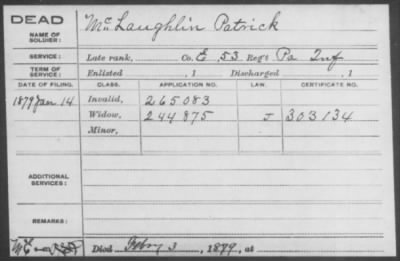 DEAD
NAME OF SOLDIER: McLaughlin Patrick
SERVICE: Late rank, Co. E, 53 Reg't Pa Inf
TERM OF SERVICE: Enlisted , 1 Discharged , 1
DATE OF FILING. CLASS. APPLICATION NO. LAW. CERTIFICATE NO.
1879 Jan 14 Invalid, 265083
Widow, 244875 J 303134
Minor,
ADDITIONAL SERVICES:
REMARKS:
Died Feby 3, 1879, at